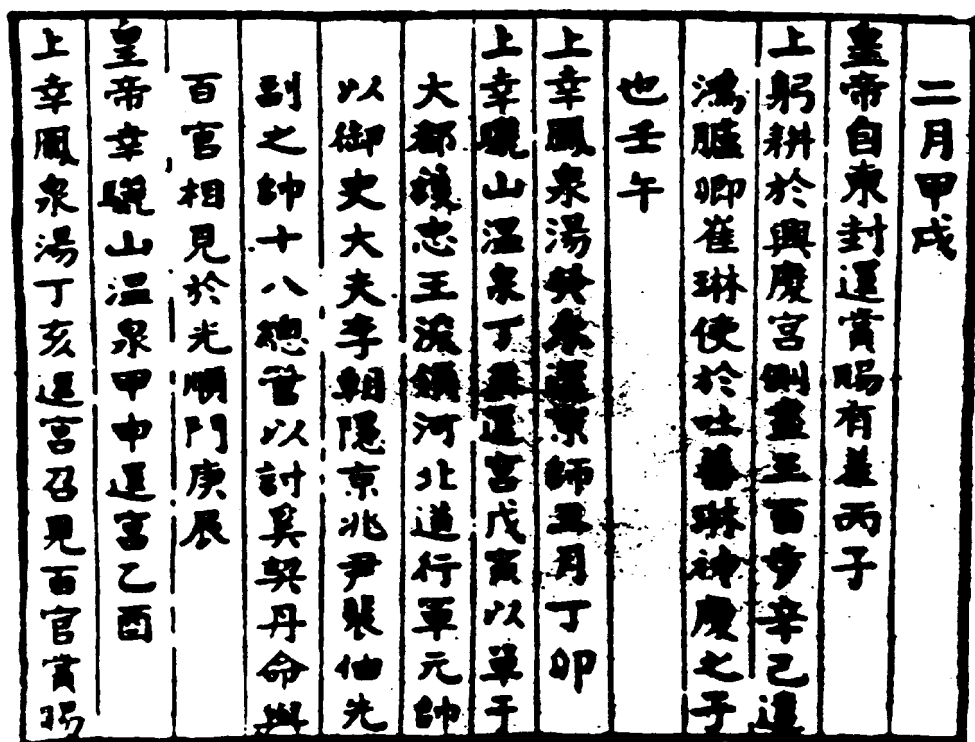 二月甲戌
皇帝自東封還賞賜有差丙子
上躬耕於興慶宮側盡三百步辛己遣
鴻臚卿崔琳使於吐蕃琳神慶之子
也壬午
上幸鳳泉湯癸未還京師三月丁卯
上幸驪山溫泉丁丑還宮戊寅以單于
大都護忠王浚領河北道行軍元帥
以御史大夫李朝隱京兆尹裴伷先
副之帥十八總管以討奚契丹命與
百官相見於光順門庚辰
皇帝幸驪山溫泉甲申還宮乙酉
上幸鳳泉湯丁亥還宮召見百官賞賜